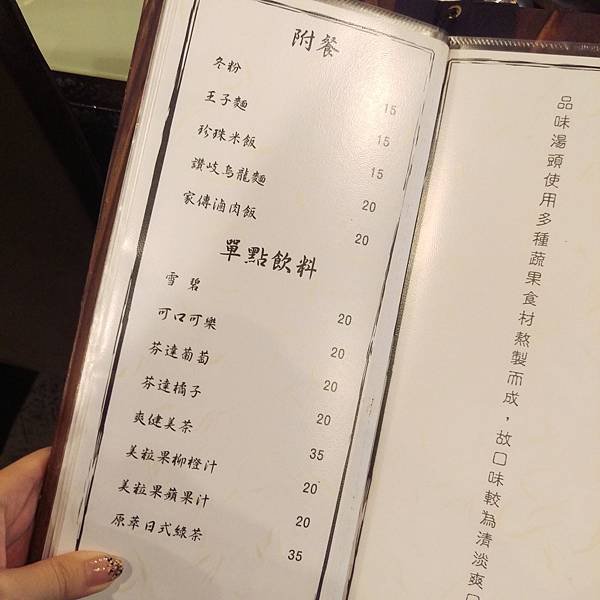 附餐
冬粉 15
王子麵 15
珍珠米飯 15
讚岐烏龍麵 20
家傳滷肉飯 20
單點飲料
雪碧 20
可口可樂 20
芬達葡萄 20
芬達橘子 20
爽健美茶 35
美粒果柳橙汁 20
美粒果蘋果汁 20
原萃日式綠茶 35
品味湯頭使用多種蔬果食材熬製而成，故口味較為清淡爽口